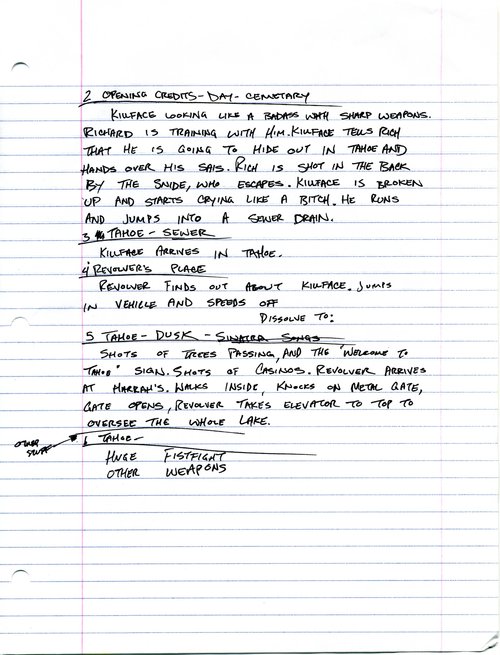 2 OPENING CREDITS - DAY - CEMETARY
KILLFACE LOOKING LIKE A BADASS WITH SHARP WEAPONS.
RICHARD IS TRAINING WITH HIM. KILLFACE TELLS RICH
THAT HE IS GOING TO HIDE OUT IN TAHOE AND
HANDS OVER HIS SAIS. RICH IS SHOT IN THE BACK
BY THE SNIDE, WHO ESCAPES. KILLFACE IS BROKEN
UP AND STARTS CRYING LIKE A BITCH. HE RUNS
AND JUMPS INTO A SEWER DRAIN.
3 TAHOE - SEWER
KILLFACE ARRIVES IN TAHOE.
4 REVOLVER'S PLACE
REVOLVER FINDS OUT ABOUT KILLFACE. JUMPS
IN VEHICLE AND SPEEDS OFF
DISSOLVE TO:
5 TAHOE - DUSK - SINATRA SONGS
SHOTS OF TREES PASSING, AND THE "WELCOME TO
TAHOE" SIGN. SHOTS OF CASINOS. REVOLVER ARRIVES
AT HARRAH'S. WALKS INSIDE, KNOCKS ON METAL GATE,
GATE OPENS, REVOLVER TAKES ELEVATOR TO TOP TO
OVERSEE THE WHOLE LAKE.
OTHER STUFF
6 TAHOE -
HUGE FISTFIGHT
OTHER WEAPONS